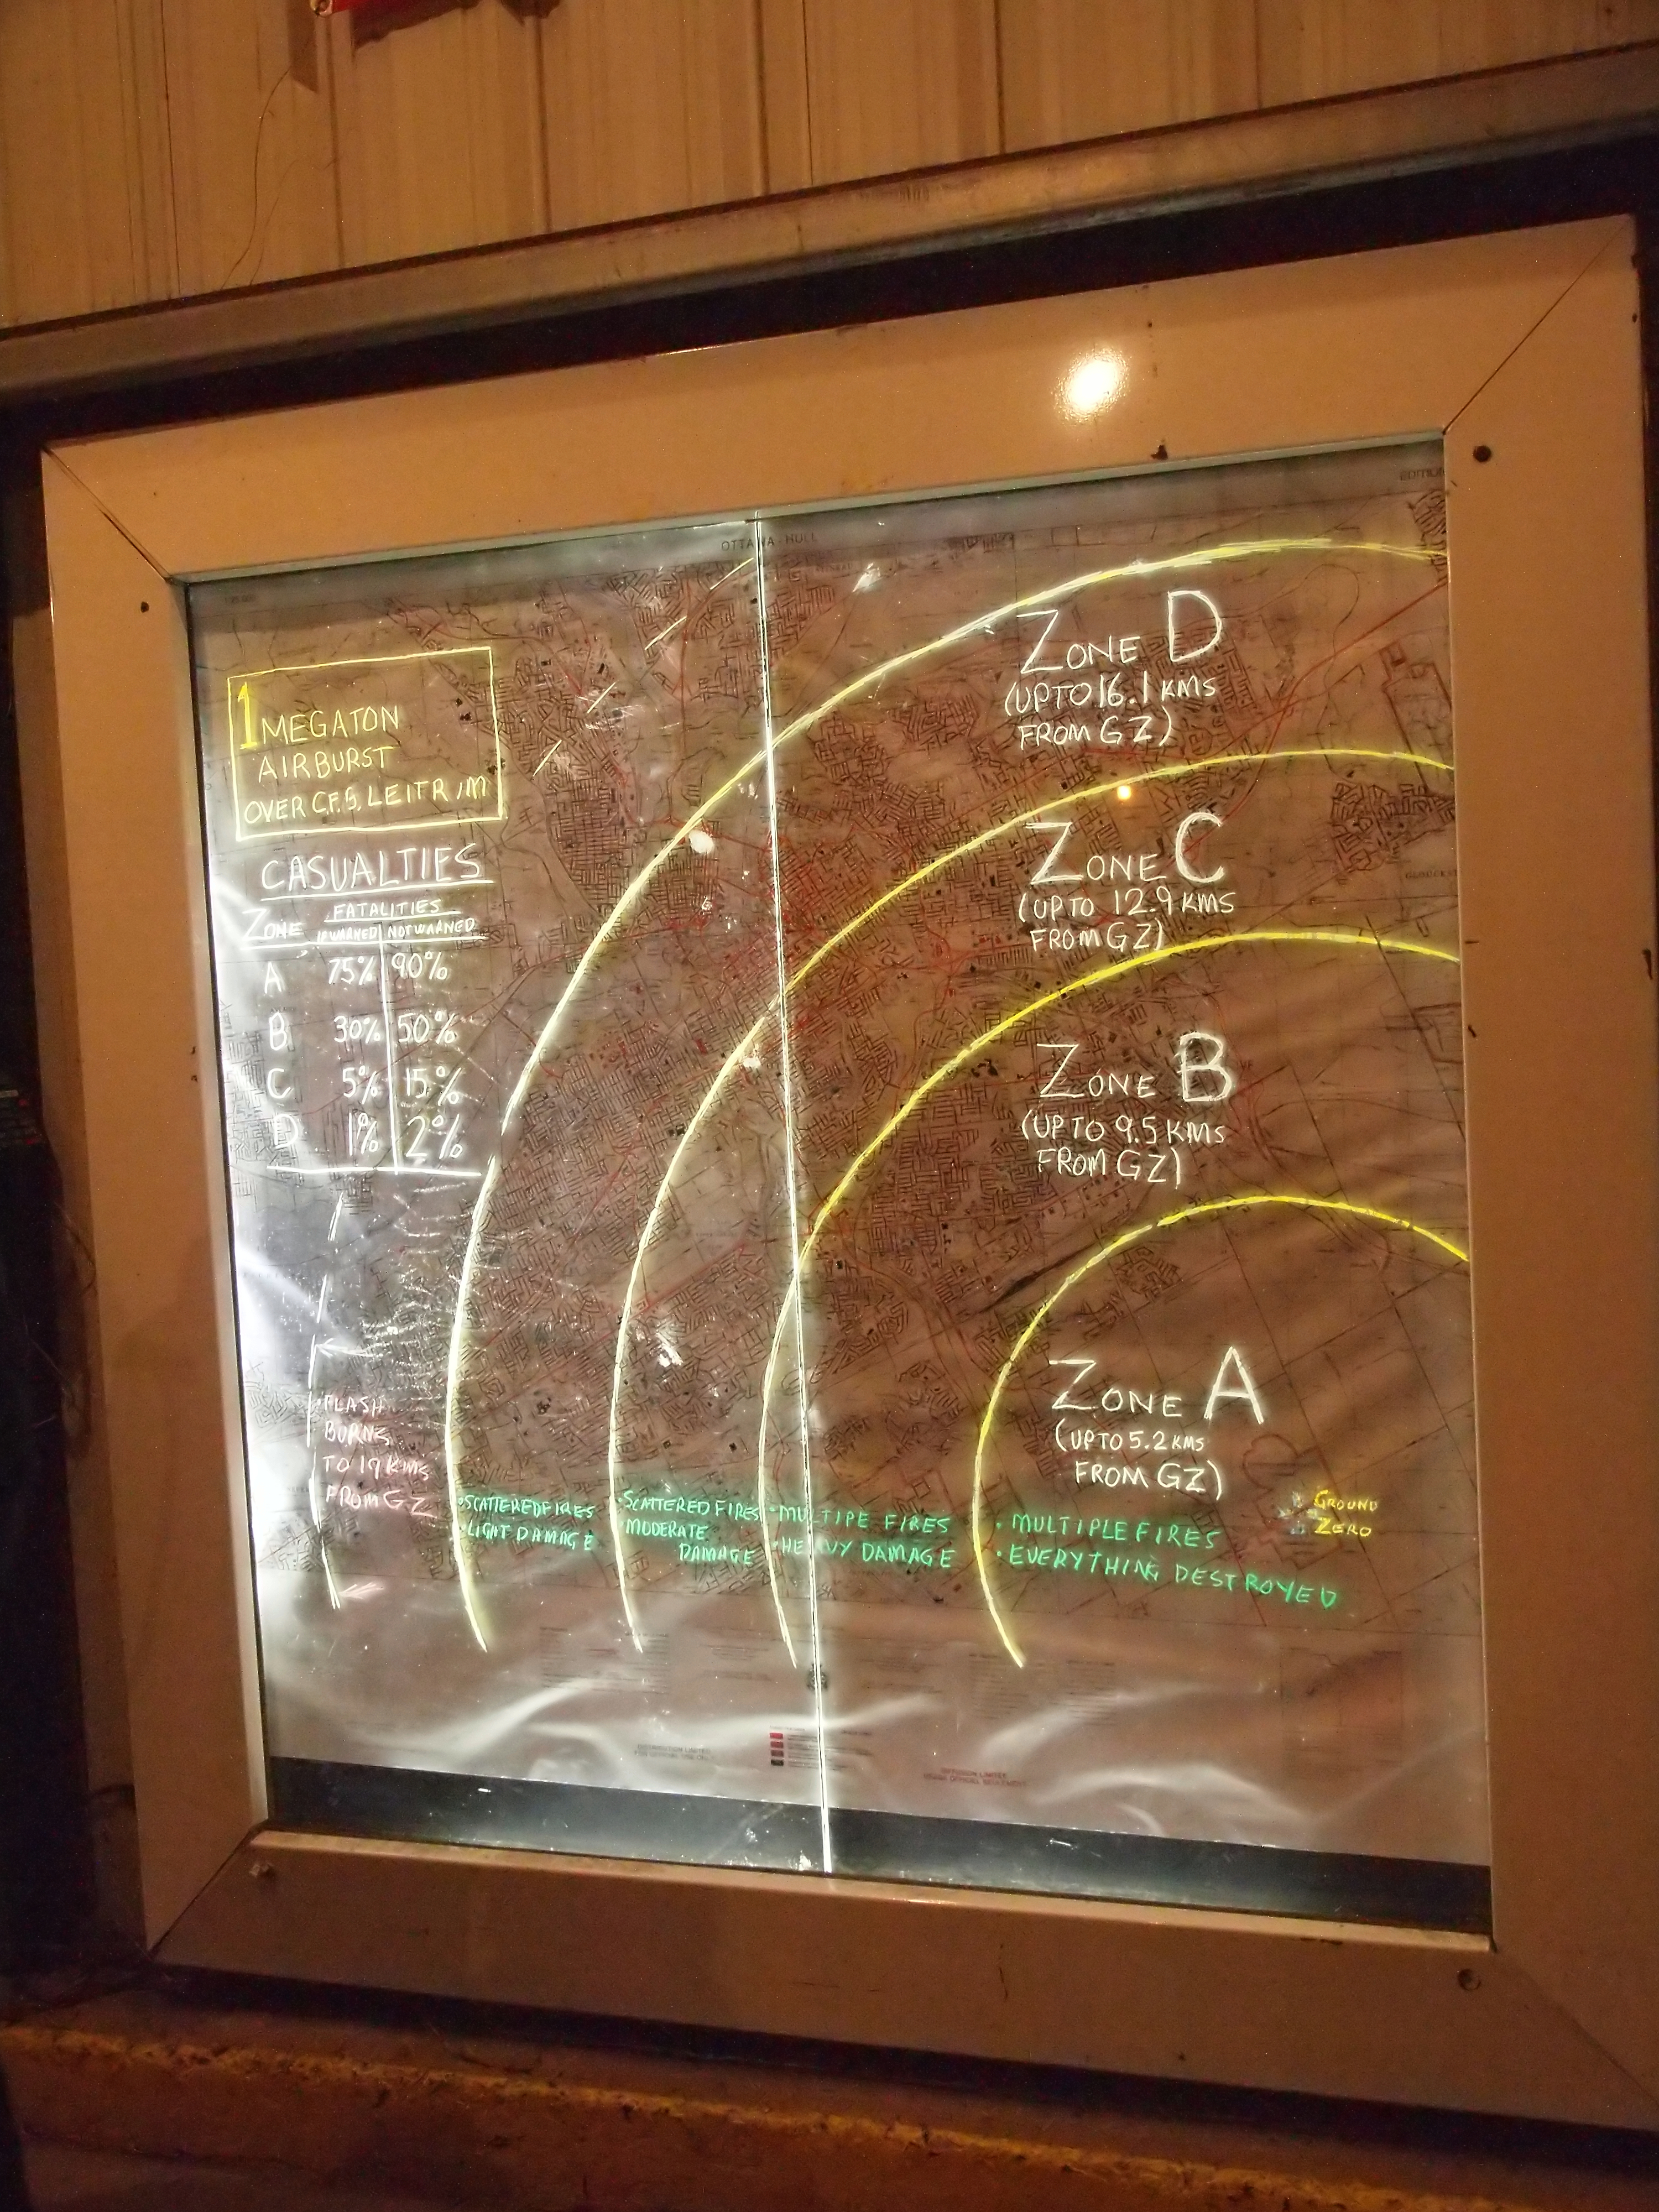 OTTAWA - HULL
EDITION
1 MEGATON
AIRBURST
OVER C.F.S. LEITRIM
CASUALTIES
FATALITIES
ZONE IF WARNED NOT WARNED
A 75% 90%
B 30% 50%
C 5% 15%
D 1% 2%
ZONE D
(UP TO 16.1 KMS
FROM GZ)
ZONE C
(UP TO 12.9 KMS
FROM GZ)
ZONE B
(UP TO 9.5 KMS
FROM GZ)
ZONE A
(UP TO 5.2 KMS
FROM GZ)
GROUND
ZERO
FLASH
BURNS
TO 19 KMS
FROM GZ
• SCATTERED FIRES
• LIGHT DAMAGE
• SCATTERED FIRES
• MODERATE
DAMAGE
• MULTIPE FIRES
• HEAVY DAMAGE
• MULTIPLE FIRES
• EVERYTHING DESTROYED